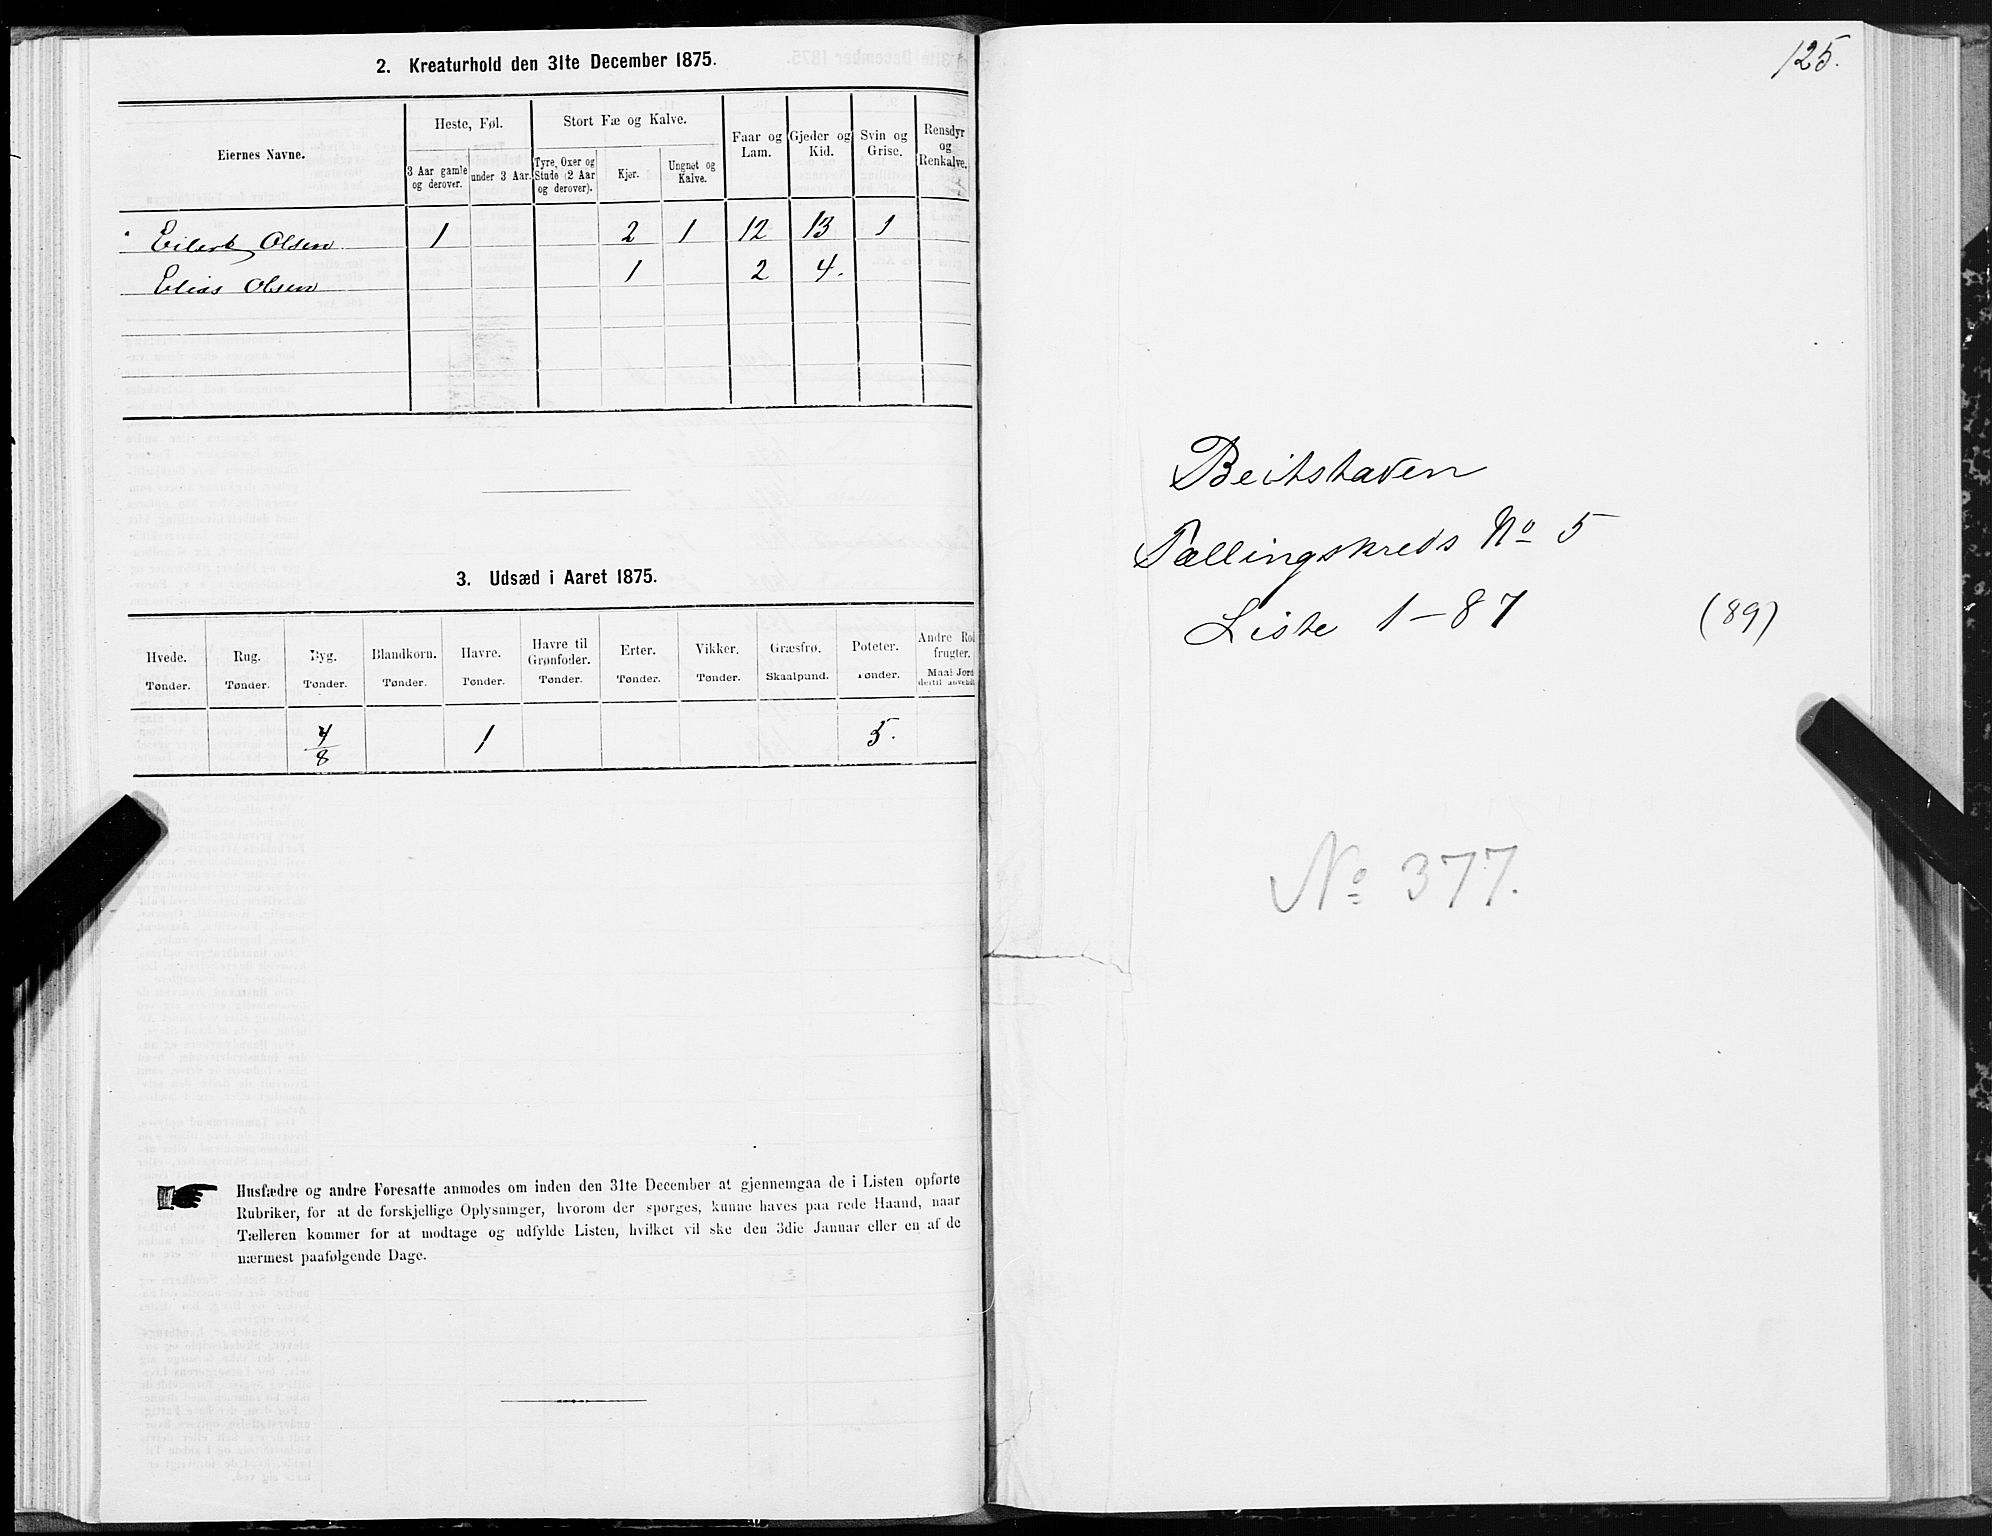 2. Kreaturhold den 31te December 1875.
Eiernes Navne.
Heste, Føl.
Stort Fæ og Kalve.
Faar og Lam.
Gjeder og Kid.
Svin og Grise.
Rensdyr og Renkalve.
3 Aar gamle og derover.
under 3 Aar.
Tyre, Oxer og Stude (2 Aar og derover).
Kjør.
Ungnøt og Kalve.
Eilert Olsen 1 2 1 12 13 1
Elias Olsen 1 2 4.
3. Udsæd i Aaret 1875.
Hvede. Rug. Byg. Blandkorn. Havre. Havre til Grønfoder. Erter. Vikker. Græsfrø. Poteter. Andre Rodfrugter.
Tønder. Tønder. Tønder. Tønder. Tønder. Tønder. Tønder. Tønder. Skaalpund. Tønder. Maal Jord dertil anvendt
4/8 1 5.
Husfædre og andre Foresatte anmodes om inden den 31te December at gjennemgaa de i Listen opførte
Rubriker, for at de forskjellige Oplysninger, hvorom der spørges, kunne haves paa rede Haand, naar
Tælleren kommer for at modtage og udfylde Listen, hvilket vil ske den 3die Januar eller en af de
nærmest paafølgende Dage.
125.
Beitstaden
Tællingskreds No 5
Liste 1-87 (89)
No 377.